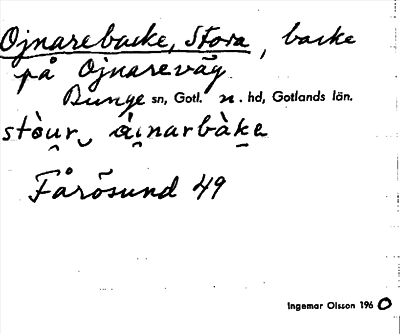 Ojnarebacke, Stora, backe
på Ojnareväg
Bunge sn, Gotl. n. hd, Gotlands län.
stòur àinarbàke
Fårösund 49
Ingemar Olsson 1960